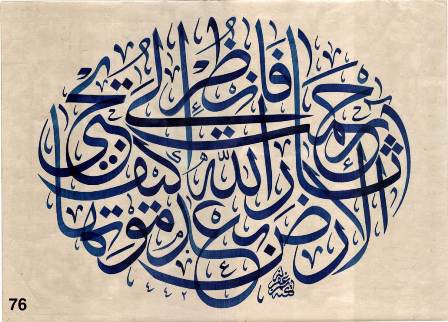 فانظر الى آثار رحمت الله كيف يحيي الارض بعد موتها
76